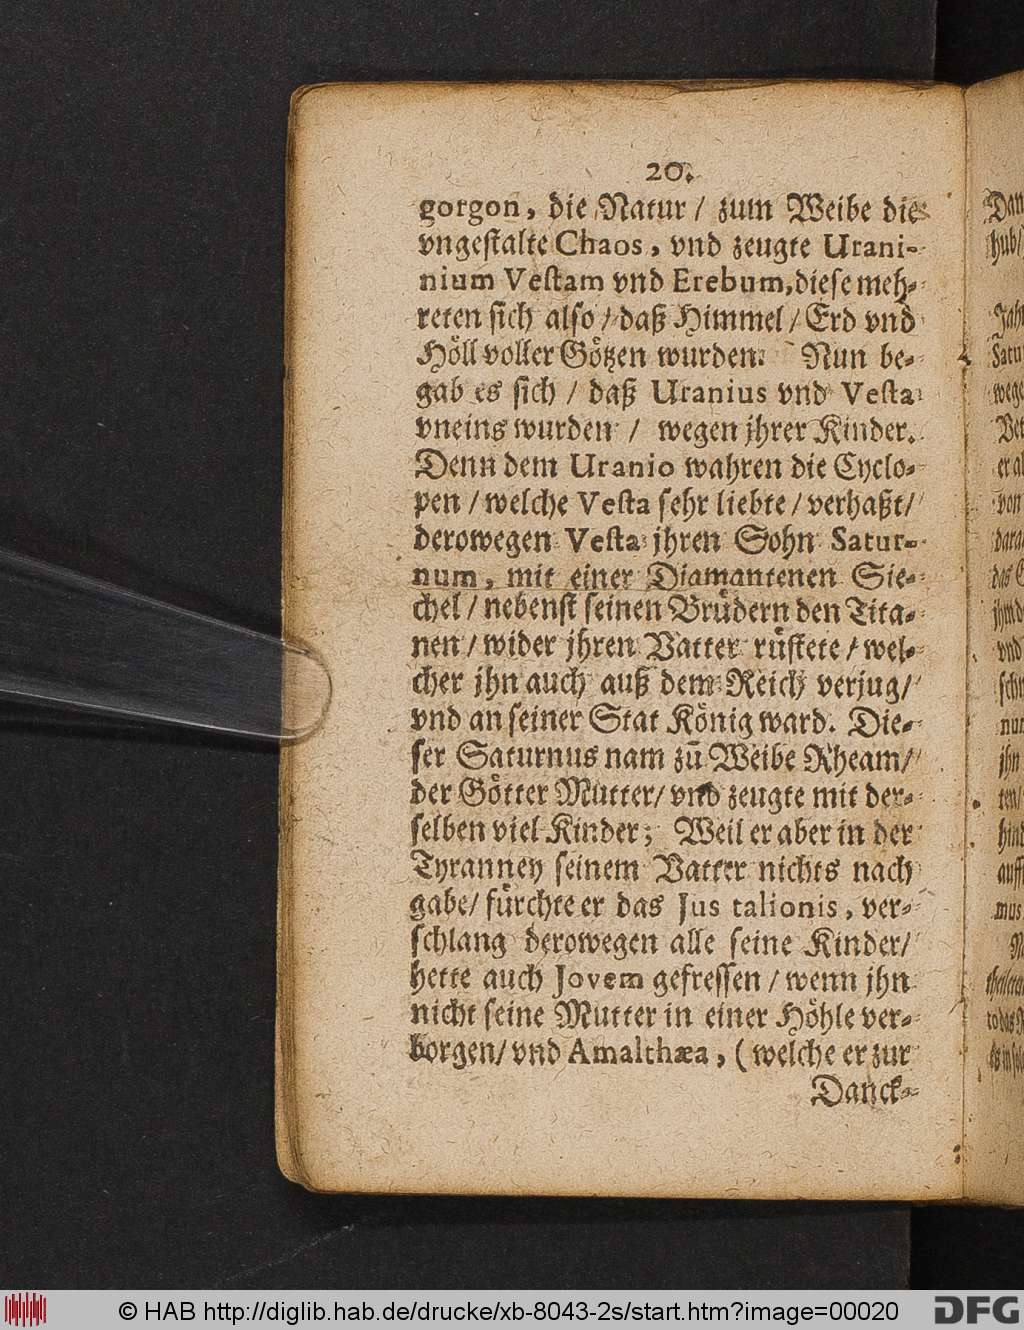 20.
gorgon, die Natur / zum Weibe die
vngestalte Chaos, vnd zeugte Urani-
nium Vestam vnd Erebum, diese meh-
reten sich also / daß Himmel / Erd vnd
Höll voller Götzen wurden. Nun be-
gab es sich / daß Uranius vnd Vesta
vneins wurden / wegen jhrer Kinder.
Denn dem Uranio wahren die Cyclo-
pen / welche Vesta sehr liebte / verhaßt /
derowegen Vesta jhren Sohn Satur-
num, mit einer Diamantenen Sie-
chel / nebenst seinen Brüdern den Tita-
nen / wider jhren Vatter rüstete / wel-
cher jhn auch auß dem Reich verjug /
vnd an seiner Stat König ward. Die-
ser Saturnus nam zū Weibe Rheam /
der Götter Mutter / vnd zeugte mit der-
selben viel Kinder; Weil er aber in der
Tyranney seinem Vatter nichts nach
gabe / fürchte er das Jus talionis, ver-
schlang derowegen alle seine Kinder /
hette auch Jovem gefressen / wenn jhn
nicht seine Mutter in einer Höhle ver-
borgen / vnd Amalthæa, (welche er zur
Danck-
© HAB http://diglib.hab.de/drucke/xb-8043-2s/start.htm?image=00020
DFG